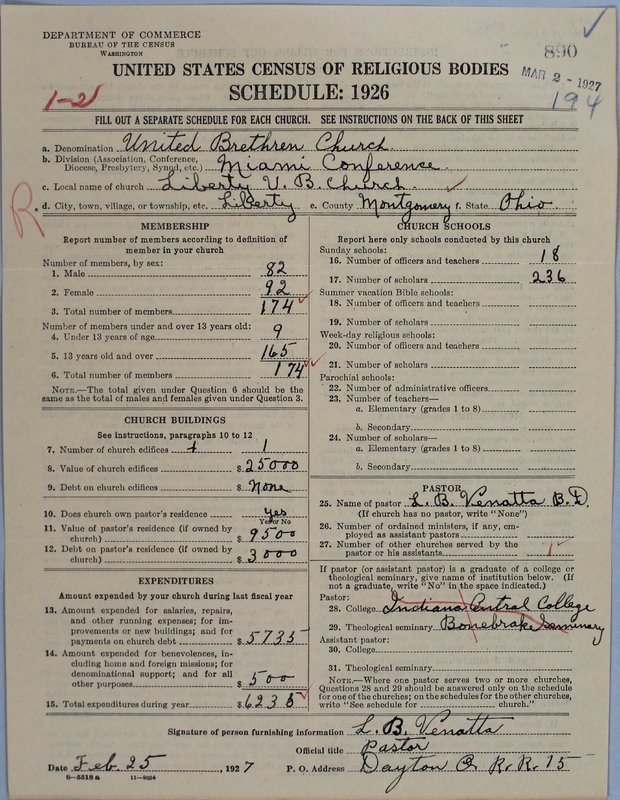 DEPARTMENT OF COMMERCE
BUREAU OF THE CENSUS
WASHINGTON
890
MAR 2 - 1927
194
1-21
UNITED STATES CENSUS OF RELIGIOUS BODIES
SCHEDULE: 1926
FILL OUT A SEPARATE SCHEDULE FOR EACH CHURCH. SEE INSTRUCTIONS ON THE BACK OF THIS SHEET
a. Denomination United Brethren Church
b. Division (Association, Conference, Diocese, Presbytery, Synod, etc.) Miami Conference
c. Local name of church Liberty U. B. Church
R. d. City, town, village, or township, etc. Liberty e. County Montgomery f. State Ohio
MEMBERSHIP
Report number of members according to definition of
member in your church
Number of members, by sex:
1. Male 82
2. Female 92
3. Total number of members 174
Number of members under and over 13 years old:
4. Under 13 years of age 9
5. 13 years old and over 165
6. Total number of members 174
NOTE.—The total given under Question 6 should be
same as the total of males and females given under Question 3.
CHURCH BUILDINGS
See instructions, paragraphs 10 to 12
7. Number of church edifices 1
8. Value of church edifices $ 25000
9. Debt on church edifices $ None
10. Does church own pastor's residence yes
Yes or No
11. Value of pastor's residence (if owned by
church) $ 9500
12. Debt on pastor's residence (if owned by
church) $ 3000
EXPENDITURES
Amount expended by your church during last fiscal year
13. Amount expended for salaries, repairs,
and other running expenses; for im-
provements or new buildings; and for
payments on church debt $ 5735
14. Amount expended for benevolences, in-
cluding home and foreign missions; for
denominational support; and for all
other purposes $ 500
15. Total expenditures during year $ 6235
CHURCH SCHOOLS
Report here only schools conducted by this church
Sunday schools:
16. Number of officers and teachers 18
17. Number of scholars 236
Summer vacation Bible schools:
18. Number of officers and teachers
19. Number of scholars
Week-day religious schools:
20. Number of officers and teachers
21. Number of scholars
Parochial schools:
22. Number of administrative officers
23. Number of teachers—
a. Elementary (grades 1 to 8)
b. Secondary
24. Number of scholars—
a. Elementary (grades 1 to 8)
b. Secondary
PASTOR
25. Name of pastor L. B. Venatta B.D.
(If church has no pastor, write "None")
26. Number of ordained ministers, if any, em-
ployed as assistant pastors
27. Number of other churches served by the
pastor or his assistants
If pastor (or assistant pastor) is a graduate of a college or
theological seminary, give name of institution below. (If
not a graduate, write "No" in the space indicated.)
Pastor:
28. College Indiana Central College
29. Theological seminary Bonebrake Seminary
Assistant pastor:
30. College
31. Theological seminary
NOTE.—Where one pastor serves two or more churches,
Questions 28 and 29 should be answered only on the schedule
for one of the churches; on the schedules for the other churches,
write "See schedule for church."
Signature of person furnishing information L. B. Venatta
Official title Pastor
Date Feb. 25, 1927 P. O. Address Dayton O. R.R. 15
8-5518 a 11-9054